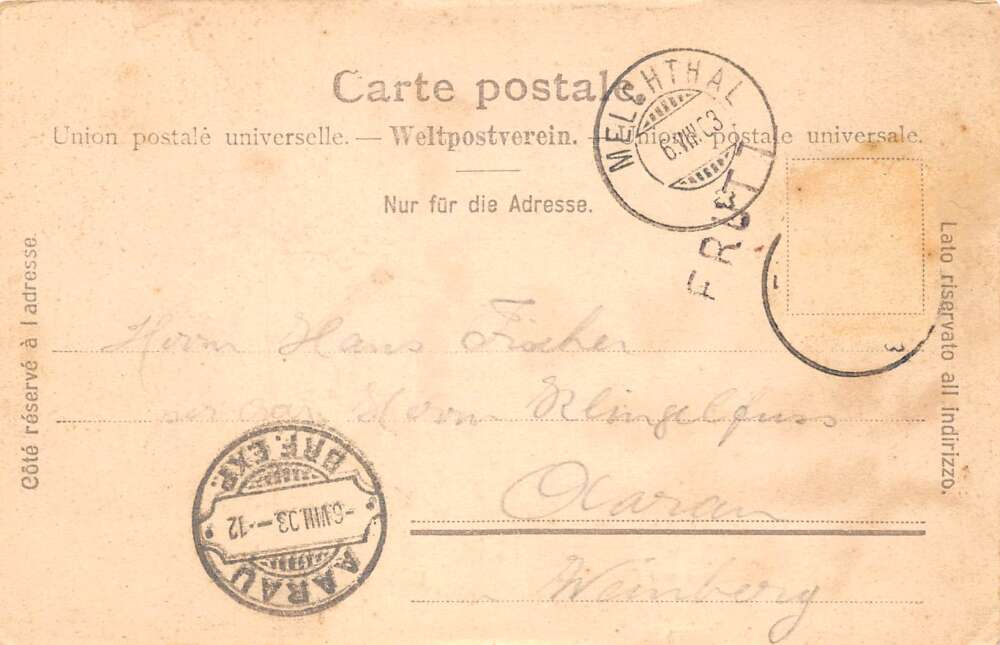 Carte postale.
Union postale universelle. — Weltpostverein. — Unione postale universale.
Nur für die Adresse.
Côté réservé à l'adresse.
Lato riservato all indirizzo.
MELCHTHAL
6.VIII.03
FRUTT
3
Herrn Hans Fischer
Herrn Klingelfuss
Aarau
Weinberg
AARAU
BRF.EXP.
-6.VIII.03.-12